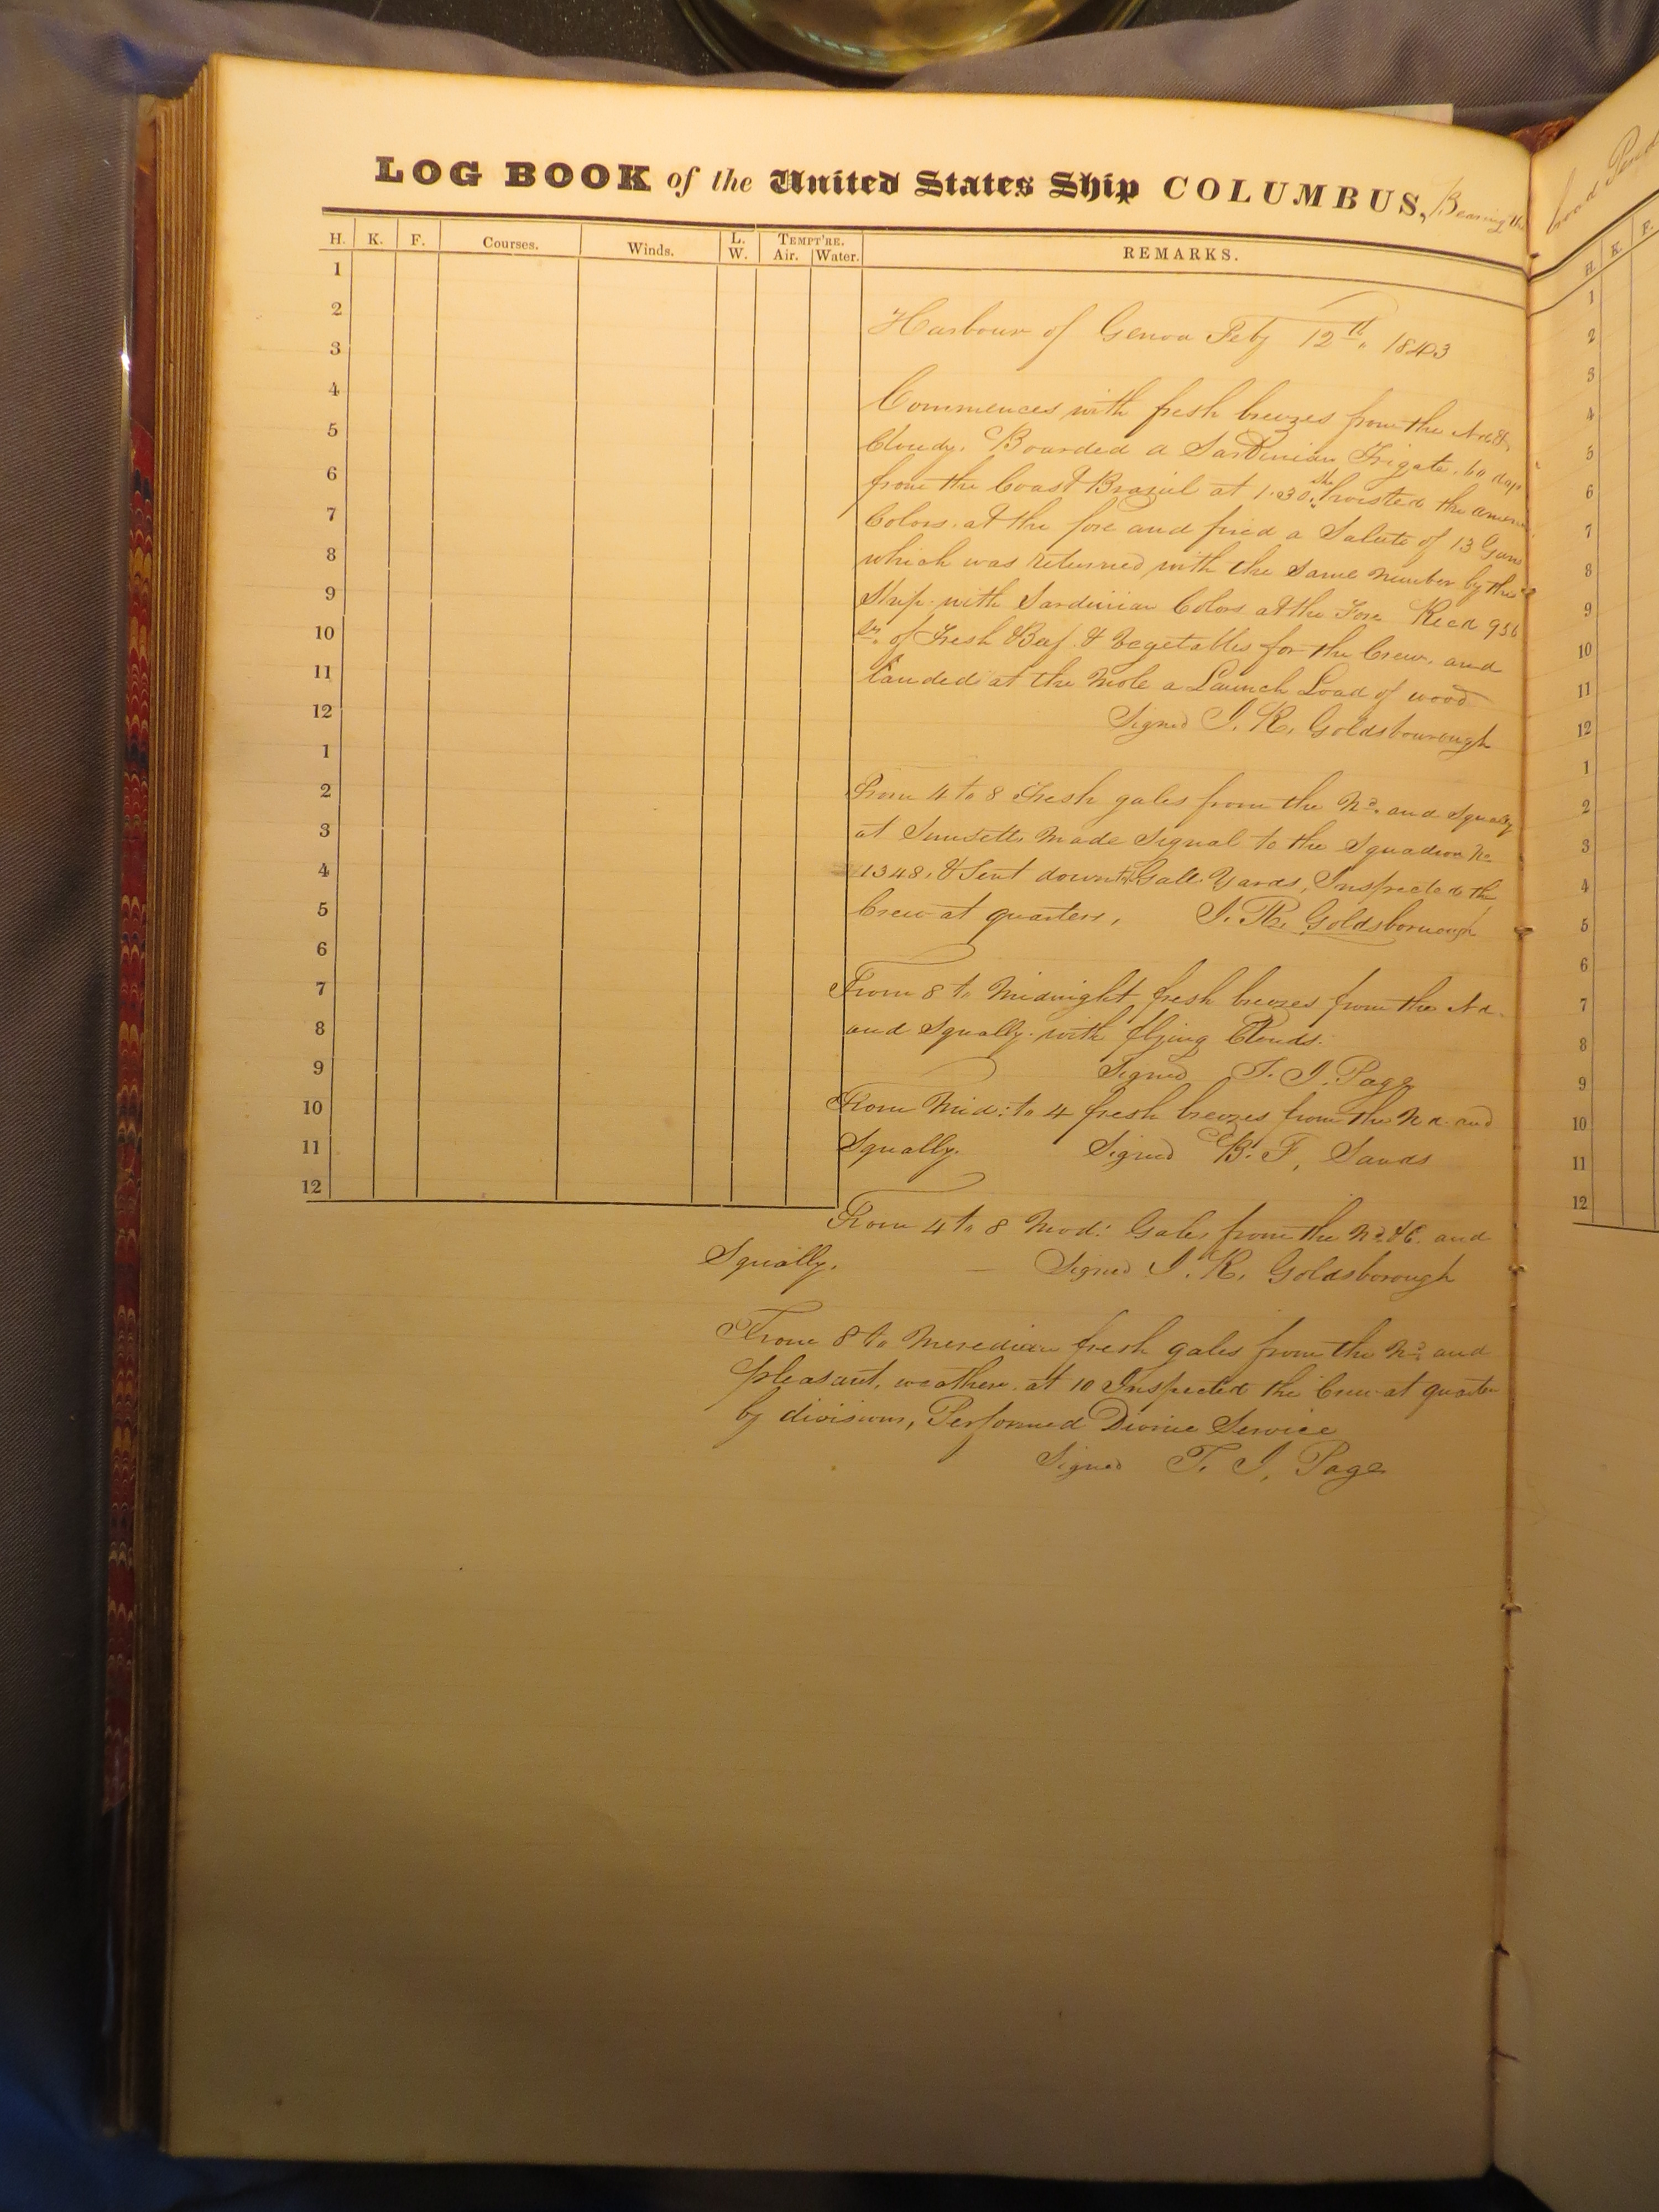 LOG BOOK of the United States Ship COLUMBUS, Bearing the
H. K. F. Courses. Winds. L. W. TEMPT'RE. Air. Water. REMARKS.
1
2
3
4
5
6
7
8
9
10
11
12
1
2
3
4
5
6
7
8
9
10
11
12
Harbour of Genoa Feby 12th, 1843
Commences with fresh breezes from the Nd &
Cloudy. Boarded a Sardinian Frigate. 60 days
from the Coast Brazil at 1.30. She hoisted the
Colors. at the fore and fired a Salute of 13 Guns
which was returned with the same number by this
Ship. with Sardinian Colors at the Fore Recd 956
lbs. of Fresh Beef & Vegetables for the Crew. and
landed at the Mole a Launch Load of wood
Signed J. R. Goldsbourough
From 4 to 8 Fresh gales from the Nd. and Squally
at Sunsett, made Signal to the Squadron No
1348, & Sent down Gall. Yards, Inspected the
Crew at quarters, J. R. Goldsborough
From 8 to Midnight fresh breezes from the Nd.
and Squally. with flying Clouds.
Signed T. J. Page
From Mid: to 4 fresh breezes from the Nd. and
Squally. Signed B. F. Sands
From 4 to 8 Mod: Gales from the Nd. & E. and
Squally. — Signed J. R. Goldsborough
From 8 to Meredian fresh gales from the Nd. and
pleasant, weather. at 10 Inspected the Crew at quarters
by divisions, Performed Divine Service
Signed T. J. Page
H. K. F.
1
2
3
4
5
6
7
8
9
10
11
12
1
2
3
4
5
6
7
8
9
10
11
12